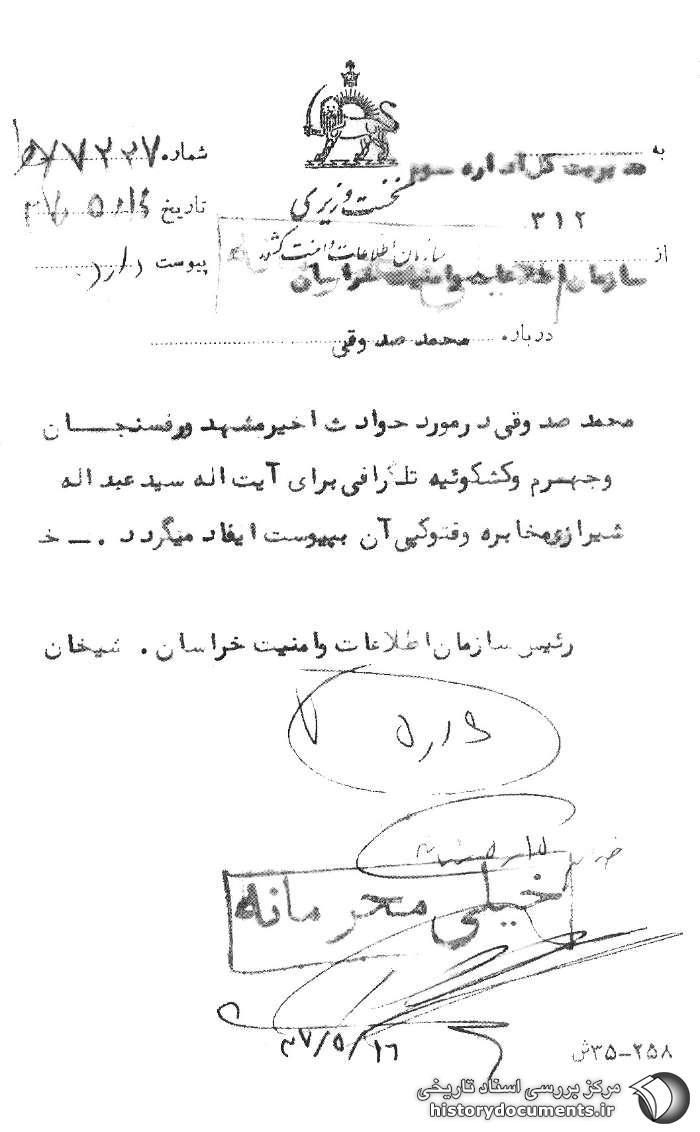 به
مدیریت کل اداره سوم
۳۱۲
از
سازمان اطلاعات وامنیت خراسان
نخست وزیری
سازمان اطلاعات و امنیت کشور
شماره
تاریخ
پیوست
درباره محمد صدوقی
محمد صدوقی درمورد حوادث اخیرمشهد ورفسنجان
وجهرم وکشکوئیه تلگرافی برای آیت اله سید عبداله
شیرازی مخابره وفتوکپی آن بپیوست ایفاد میگردد . ـ خ
رئیس سازمان اطلاعات وامنیت خراسان . شیخان
خیلی محرمانه
۳۷/۵/۱۶
۲۵۸-۳۵ش
مرکز بررسی اسناد تاریخی
historydocuments.ir